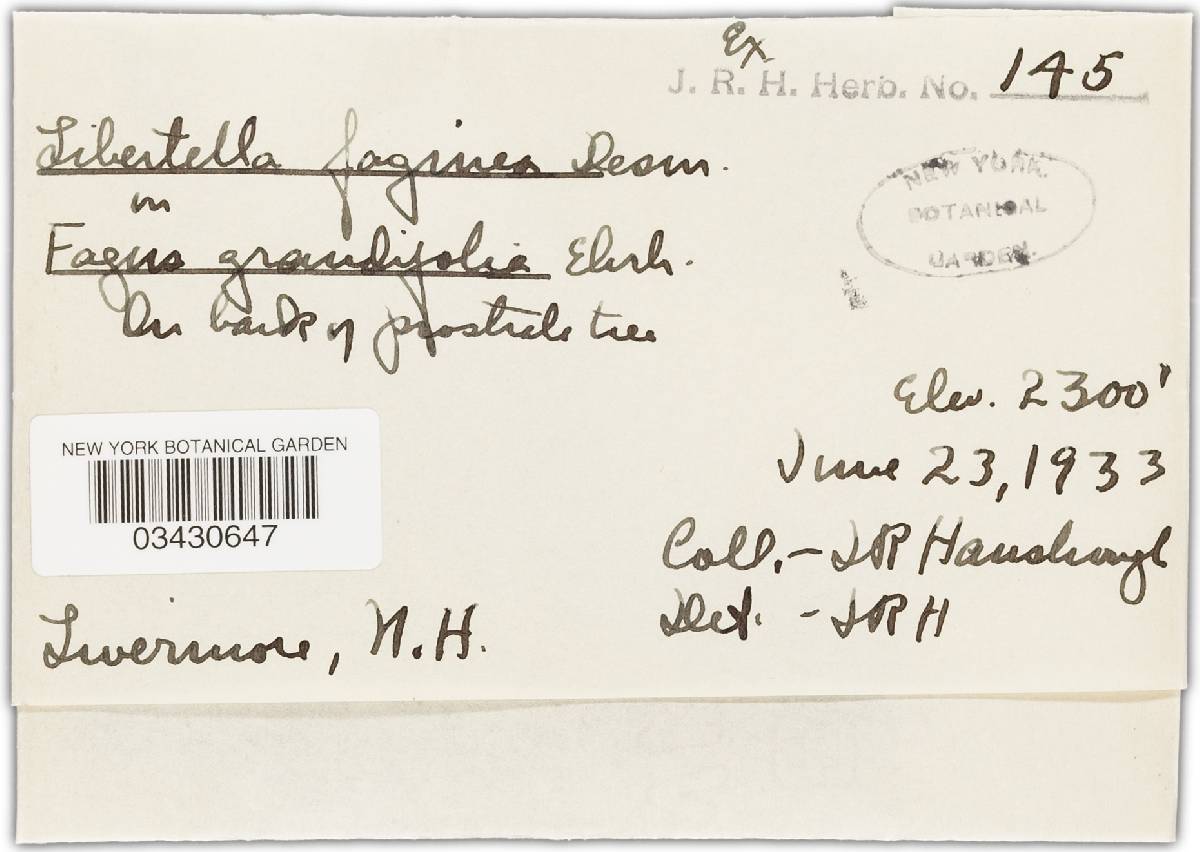 Ex
J. R. H. Herb. No. 145
Libertella faginea Desm.
on
Fagus grandifolia Ehrh.
On bark of prostrate tree
NEW YORK
BOTANICAL
GARDEN
Elev. 2300'
June 23, 1933
NEW YORK BOTANICAL GARDEN
03430647
Coll. - JR Hansbrough
Det. - JRH
Livermore, N.H.